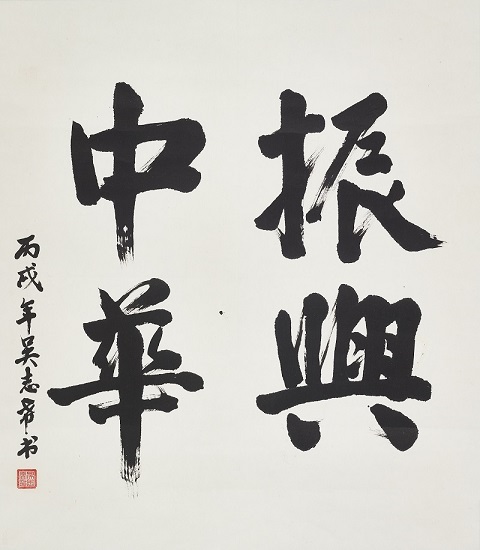 振興
中華
丙戌年吴志希书